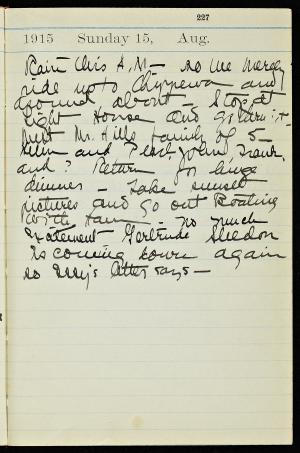 227
1915 Sunday 15, Aug.
Rain this A.M - so we merely
ride up to Chippewa and
around about - Stop at
Light House and
meet Mr. Hills family of 5 -
and John, Frank,
and ? Return for
dinner - Take sunset
pictures and go out Boating
with - no such
Statement Gertrude Sheldon
Is coming down again
so letter says -